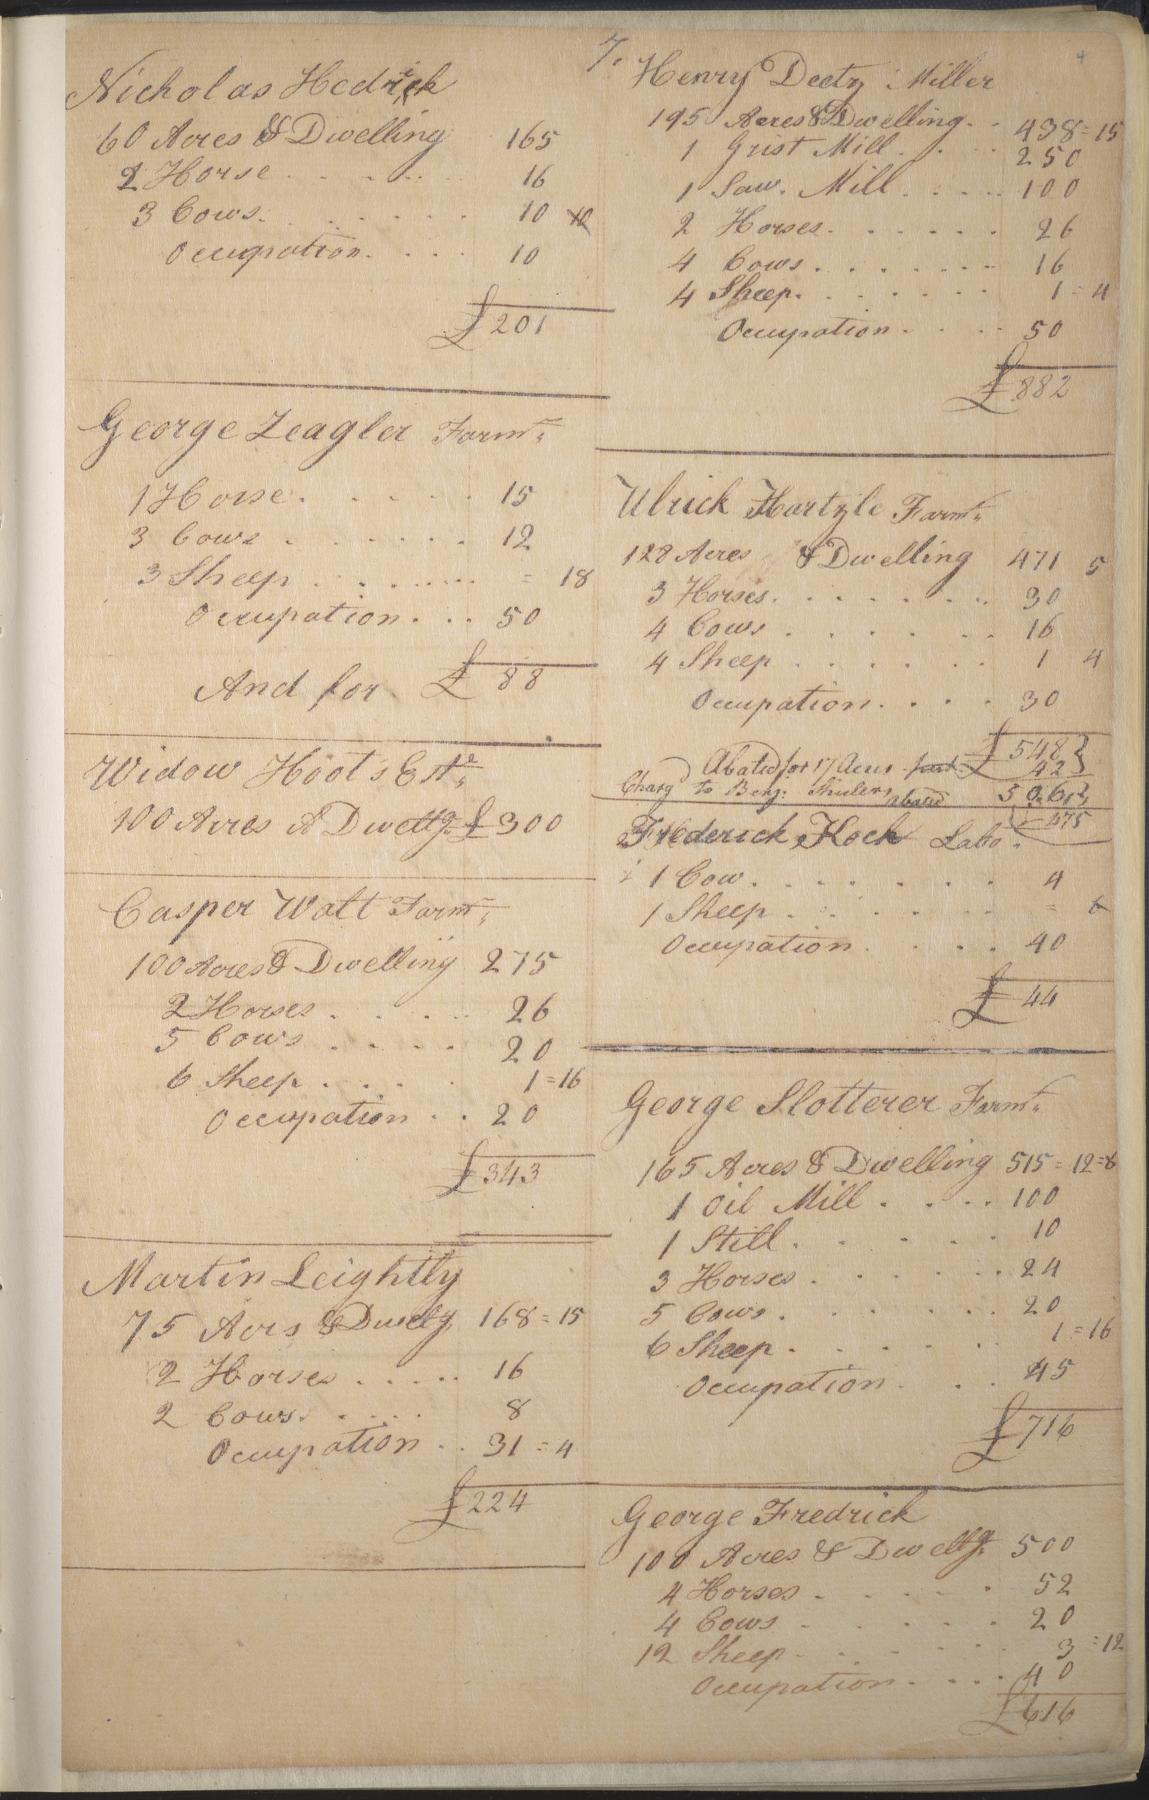 7.
4
Nicholas Hedrick
60 Acres & Dwelling 165
2 Horse . . . . . 16
3 Cows . . . . . 10
Occupation . . . . 10
£ 201
George Zeagler Farmr.
1 Horse . . . . . 15
3 Cows . . . . . . 12
3 Sheep . . . . . . = 18
Occupation . . . 50
And for £ 88
Widow Hoot's Este.
100 Acres & Dwellg. £ 300
Casper Watt Farmr.
100 Acres & Dwelling 275
2 Horses . . . . 26
5 Cows . . . . 20
6 Sheep . . . . 1 = 16
Occupation . . 20
£ 343
Martin Leightly
75 Acrs & Dwellg 168 = 15
2 Horses . . . . . 16
2 Cows . . . . 8
Occupation . . 31 = 4
£ 224
Henry Deetz Miller
195 Acres & Dwelling . . 438 = 15
1 Grist Mill . . . . 250
1 Saw Mill . . . . . 100
2 Horses . . . . . . 26
4 Cows . . . . . . . 16
4 Sheep . . . . . . 1 = 4
Occupation . . . . 50
£ 882
Ulrick Hartzle Farmr.
128 Acres & Dwelling 471 5
3 Horses . . . . . . . 30
4 Cows . . . . . . . 16
4 Sheep . . . . . . 1 4
Occupation . . . . 30
£ 548
Abated for 17 Acres 42
Charg to Benj: abated
475
Frederick Kock Labo.
1 Cow . . . . . . . 4
1 Sheep . . . . . . = 6
Occupation . . . . 40
£ 44
George Slotterer Farmr.
165 Acres & Dwelling 515 = 12 = 6
1 Oil Mill . . . . 100
1 Still . . . . . . 10
3 Horses . . . . . . 24
5 Cows . . . . . . 20
6 Sheep . . . . . . 1 = 16
Occupation . . . 45
£ 716
George Fredrick
100 Acres & Dwellg. 500
4 Horses . . . . . 52
4 Cows . . . . . . 20
12 Sheep . . . . . . 3 = 12
Occupation . . . . 40
£ 616